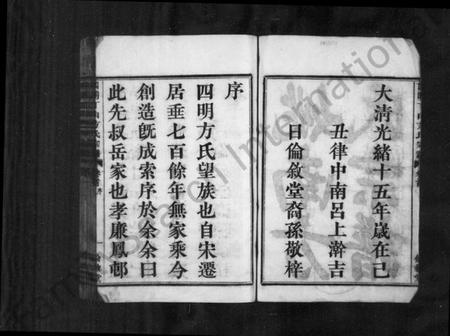 大清光緒十五年歲在己
丑律中南呂上澣吉
日倫敘堂裔孫敬梓
序
四明方氏望族也自宋遷
居垂七百餘年無家乘今
創造旣成索序於余余曰
此先叔岳家也孝廉鳳邨